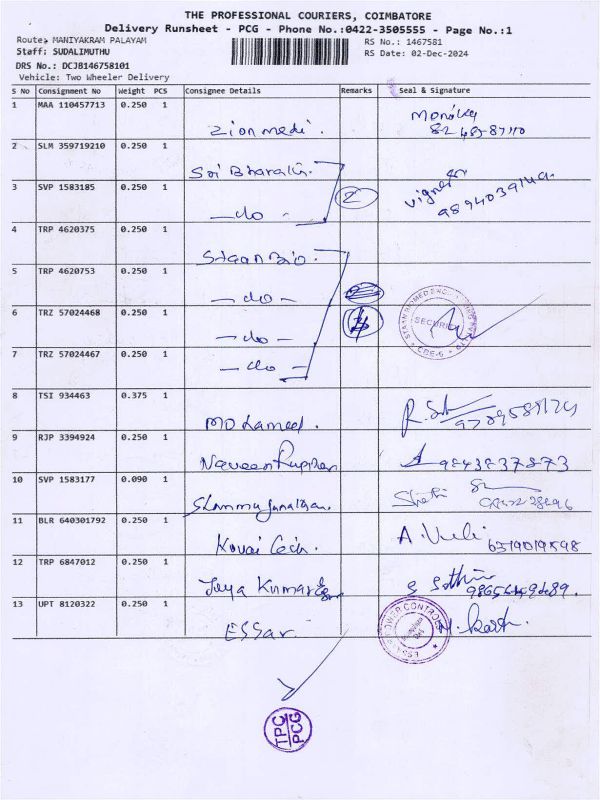 THE PROFESSIONAL COURIERS, COIMBATORE
Delivery Runsheet - PCG - Phone No.:0422-3505555 - Page No.:1
Route: MANIYAKRAM PALAYAM
RS No.: 1467581
Staff: SUDALIMUTHU
RS Date: 02-Dec-2024
DRS No.: DCJB146758101
Vehicle: Two Wheeler Delivery
S No Consignment No Weight PCS Consignee Details Remarks Seal & Signature
1 MAA 110457713 0.250 1 Zion medi. Monika
2 SLM 359719210 0.250 1 Sri Bharath.
3 SVP 1583185 0.250 1 — do — 2
4 TRP 4620375 0.250 1 Staan Bio.
5 TRP 4620753 0.250 1 — do —
6 TRZ 57024468 0.250 1 — do — SECURITY
7 TRZ 57024467 0.250 1 — do —
8 TSI 934463 0.375 1 Mohamed.
9 RJP 3394924 0.250 1 Naveen 9843837873
10 SVP 1583177 0.090 1
11 BLR 640301792 0.250 1 Kovai 6319019598
12 TRP 6847012 0.250 1 Jaya Kumar
13 UPT 8120322 0.250 1 ESSar
TPC
PCG